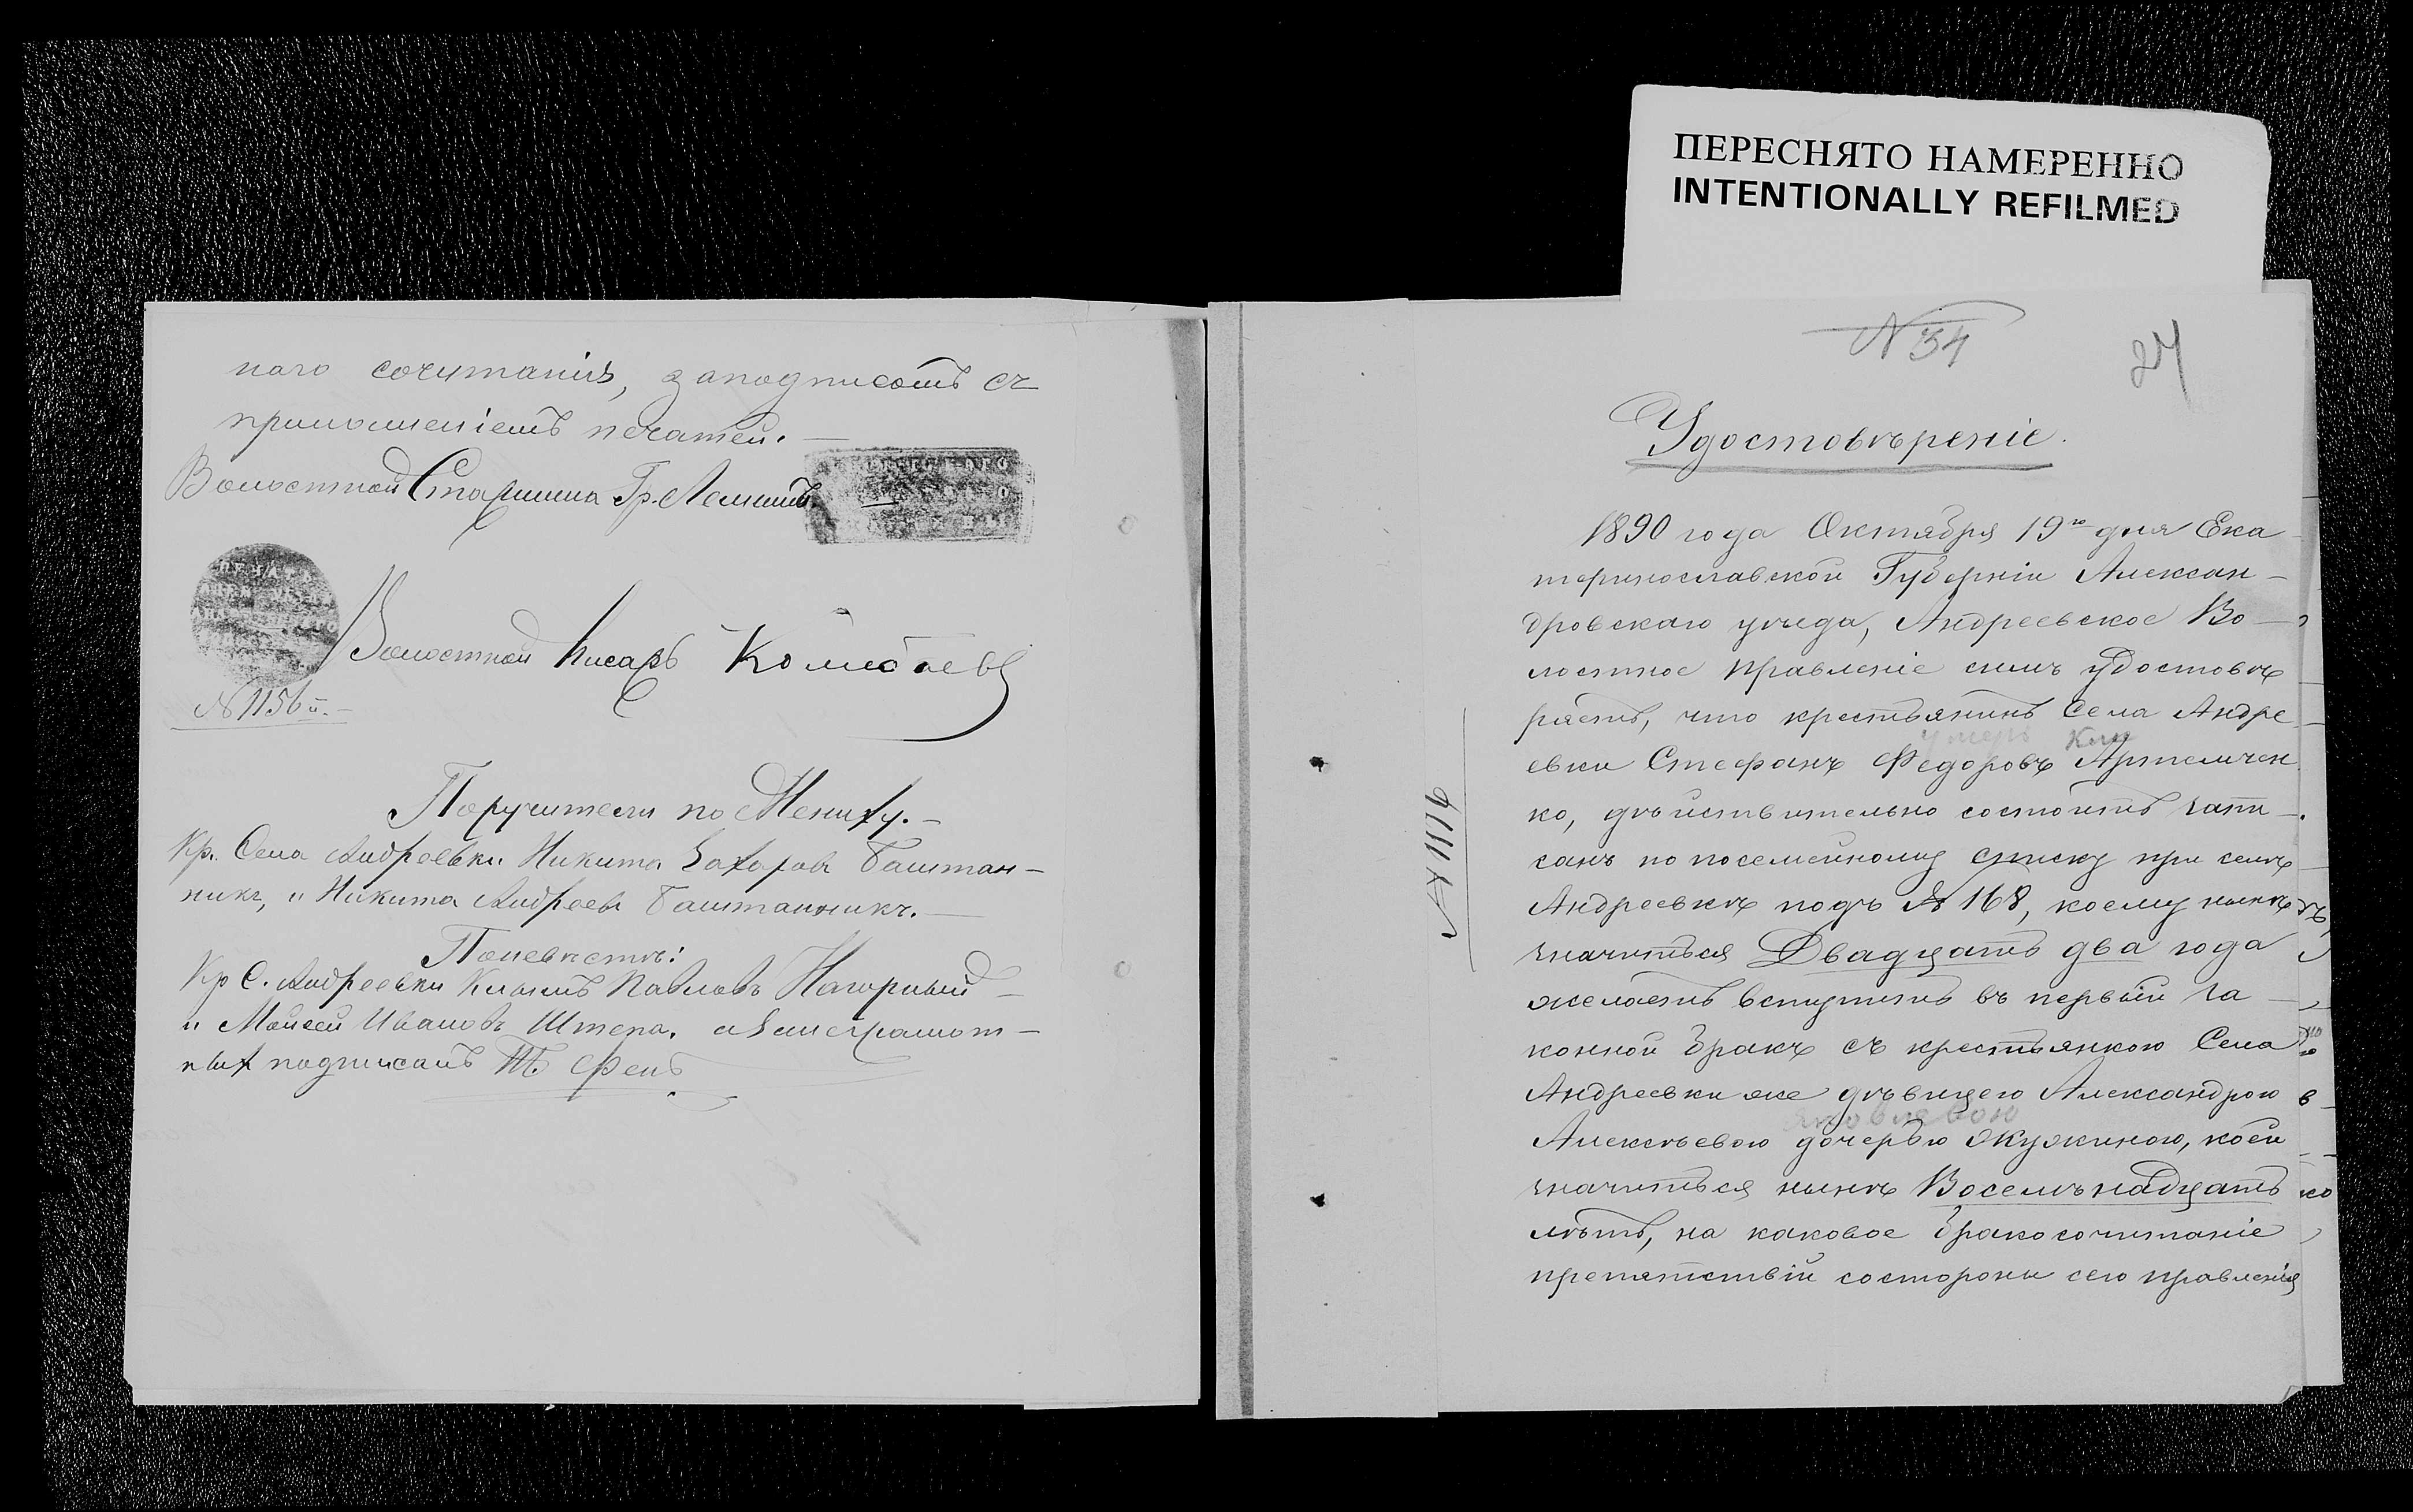 наго сочитанія, заподписомъ съ
приложеніемъ печатей. —
Волостной Старшина Гр.
ПЕЧАТЬ
Волостной Писарь
№ 1156 й. —
Поручители по Жениху. —
Кр. Села Андреевки Никита Захаровъ Баштан-
никъ, и Никита Андреевъ Баштанникъ. —
По невѣстѣ:
Кр С. Андреевки Климъ Павловъ Нагорный —
и Мойсей Ивановъ Штепа. а за неграмот-
ныхъ подписалъ
ПЕРЕСНЯТО НАМЕРЕННО
INTENTIONALLY REFILMED
№ 34
24
Удостовѣреніе.
1890 года Октября 19го дня Ека
теринославской Губерніи Алексан-
дровскаго уѣзда, Андреевское Во-
лостное Правленіе симъ удостовѣ
ряетъ, что крестьянинъ Села Андре
умеръ
евки Стефанъ Федоровъ Артемчен
ко, дѣйствительно состоитъ запи-
санъ по посемейному списку при селѣ
Андреевкѣ подъ № 168, коему нынѣ
значиться Двадцать два года
желаетъ вступить въ первый за
конной бракъ съ крестьянкою Села
Андреевки же дѣвицею Александрою
Яковлевою
Алексѣевою дочерью Якужиною, коей
значиться нынѣ Восемьнадцать
лѣтъ, на каковое бракосочитаніе
препятствій состороны сего правленія
№ 1114